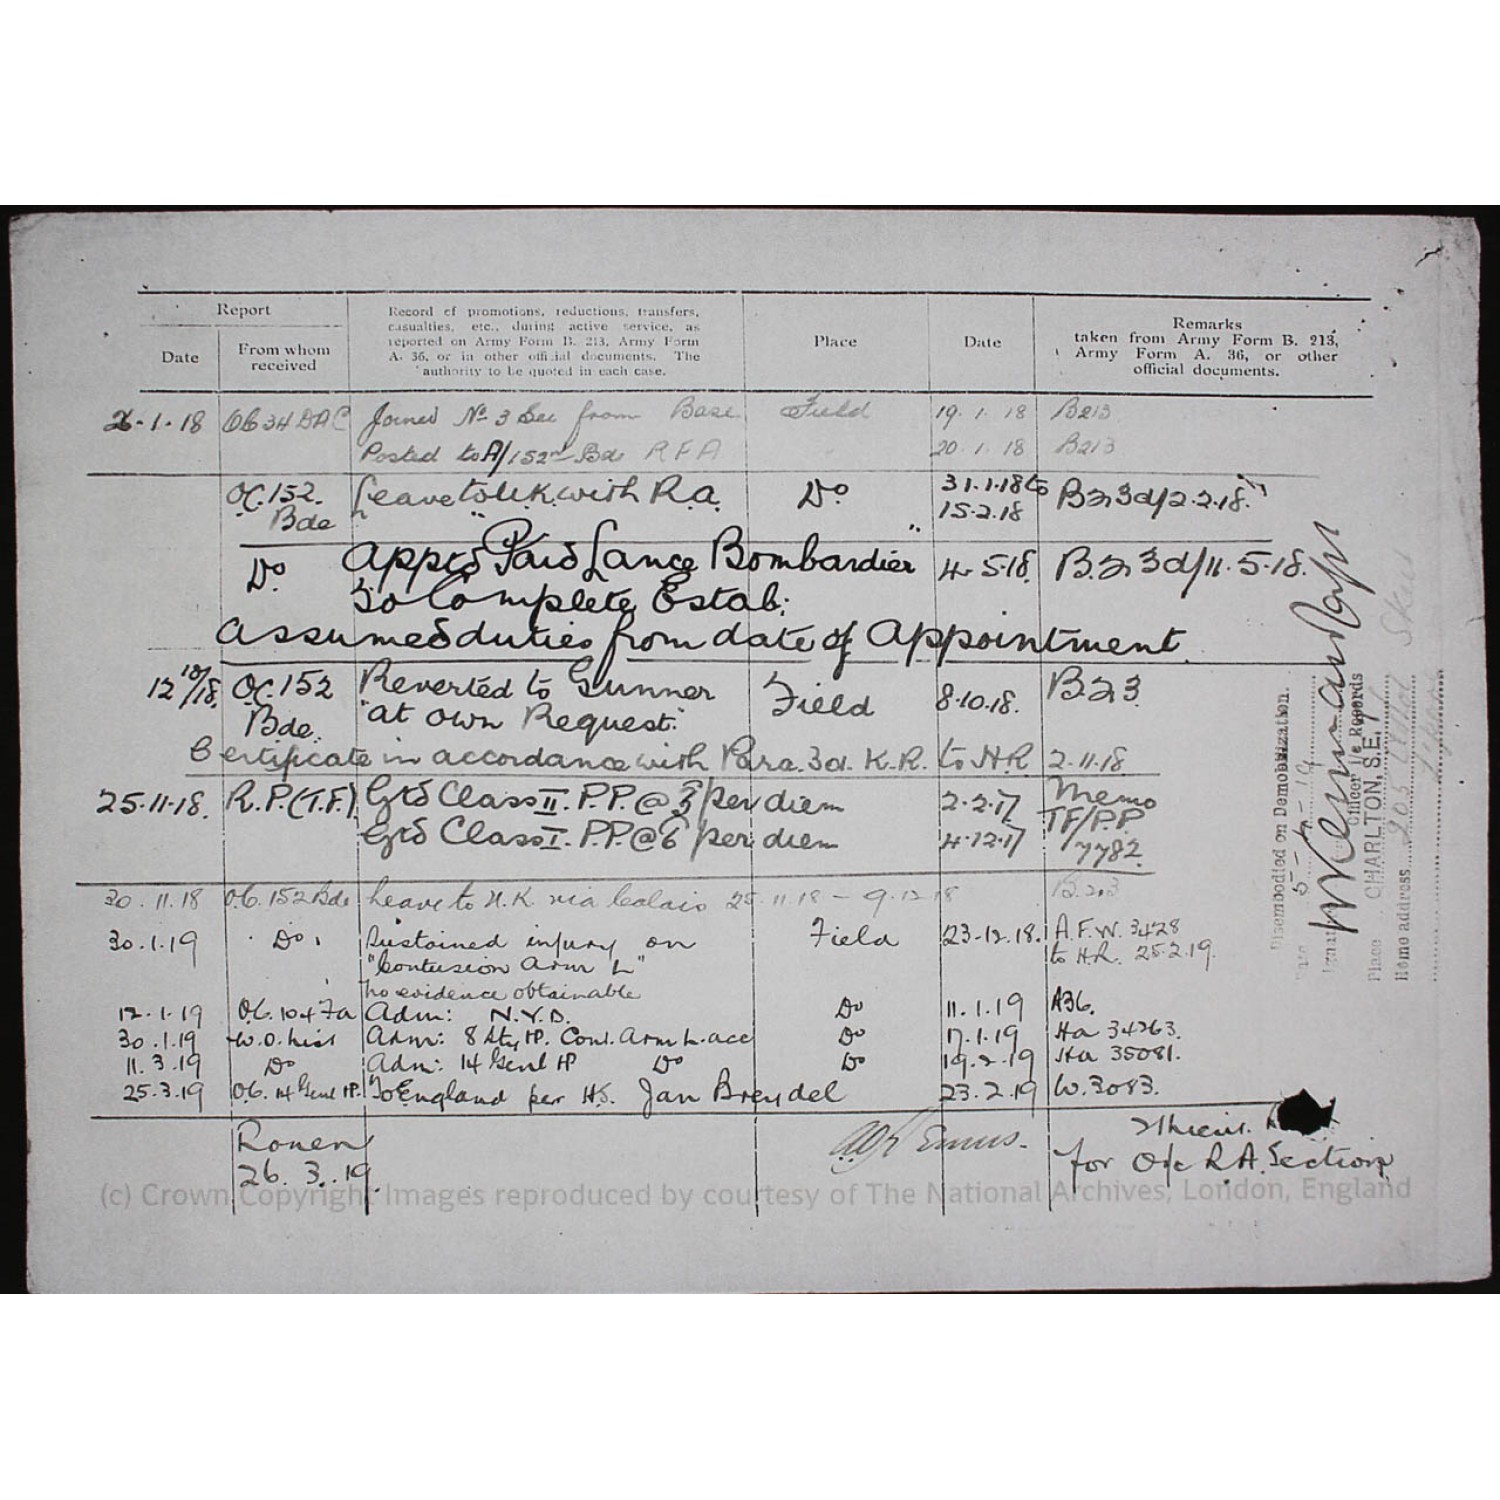 Report
Date
From whom received
Record of promotions, reductions, transfers,
casualties, etc., during active service, as
reported on Army Form B. 213, Army Form
A. 36, or in other official documents. The
authority to be quoted in each case.
Place
Date
Remarks
taken from Army Form B. 213,
Army Form A. 36, or other
official documents.
26.1.18 OC 34 DAC Joined No 3 Sec from Base Field 19.1.18 B213
Posted to A/152nd Bde RFA 20.1.18 B213
OC.152. Bde Leave to U.K. with R.a. Do 31.1.18 to 15.2.18 B213d/2.2.18.
Do appt'd "Paid Lance Bombardier" 4.5.18. B.213d/11.5.18.
To Complete Estab:
assumed duties from date of appointment
12/10/18. OC.152 Bde. Reverted to Gunner Field 8.10.18. B213
"at own Request."
Certificate in accordance with Para. 3d. K.R. to H.R 2.11.18
25.11.18. R.P.(T.F.) Gtd Class II. P.P. @ 3 per diem 2.2.17 Memo
Gtd Class I. P.P. @ 6 per diem 4.12.17 TF/P.P. 7782.
30.11.18 OC.152 Bde Leave to U.K via Calais 25.11.18 - 9.12.18 B.213
30.1.19 Do. Sustained injury on Field 23.12.18. A.F.W. 3428
"Contusion Arm L" to H.R. 25.2.19.
no evidence obtainable
12.1.19 OC. 104 Fa Adm: N.Y.D. Do 11.1.19 A36.
30.1.19 W.O. List Adm: 8 Sty HP. Cont. Arm L. acc Do 17.1.19 Ha 34263.
11.3.19 Do Adm: 14 Genl HP Do Do 19.2.19 Ha 35081.
25.3.19 OC. 14 Genl HP. To England per HS. Jan Breydel 23.2.19 W.3083.
Rouen
26.3.19
for O/c R.A. Section
Disembodied on Demobilization.
Officer i/c Records
Place CHARLTON, S.E.7
Home address
(c) Crown Copyright Images reproduced by courtesy of The National Archives, London, England